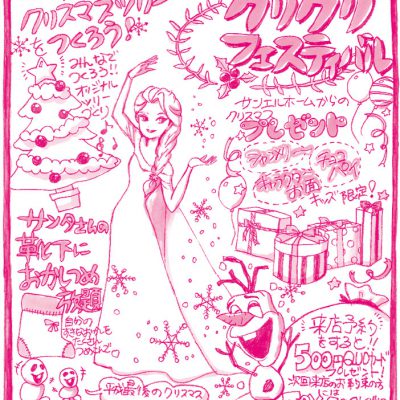 クリスマスツリー
をつくろう!
みんなで
つくろう!!
オリジナル
ツリー
づくり
クリクリ
フェスティバル
サンエルホームからの
クリスマス
プレゼント
シャンメリー
チョコ
パイ
キャラクター
お面
キッズ限定!
サンタさんの
靴下に
おかしつめ
放題
自分の
すきなおかしを
たくさん
つめこもう
来店予約
をすると!!
500円QUOカード
プレゼント!
次回来店のお約束の方
には
平成最後のクリスマス